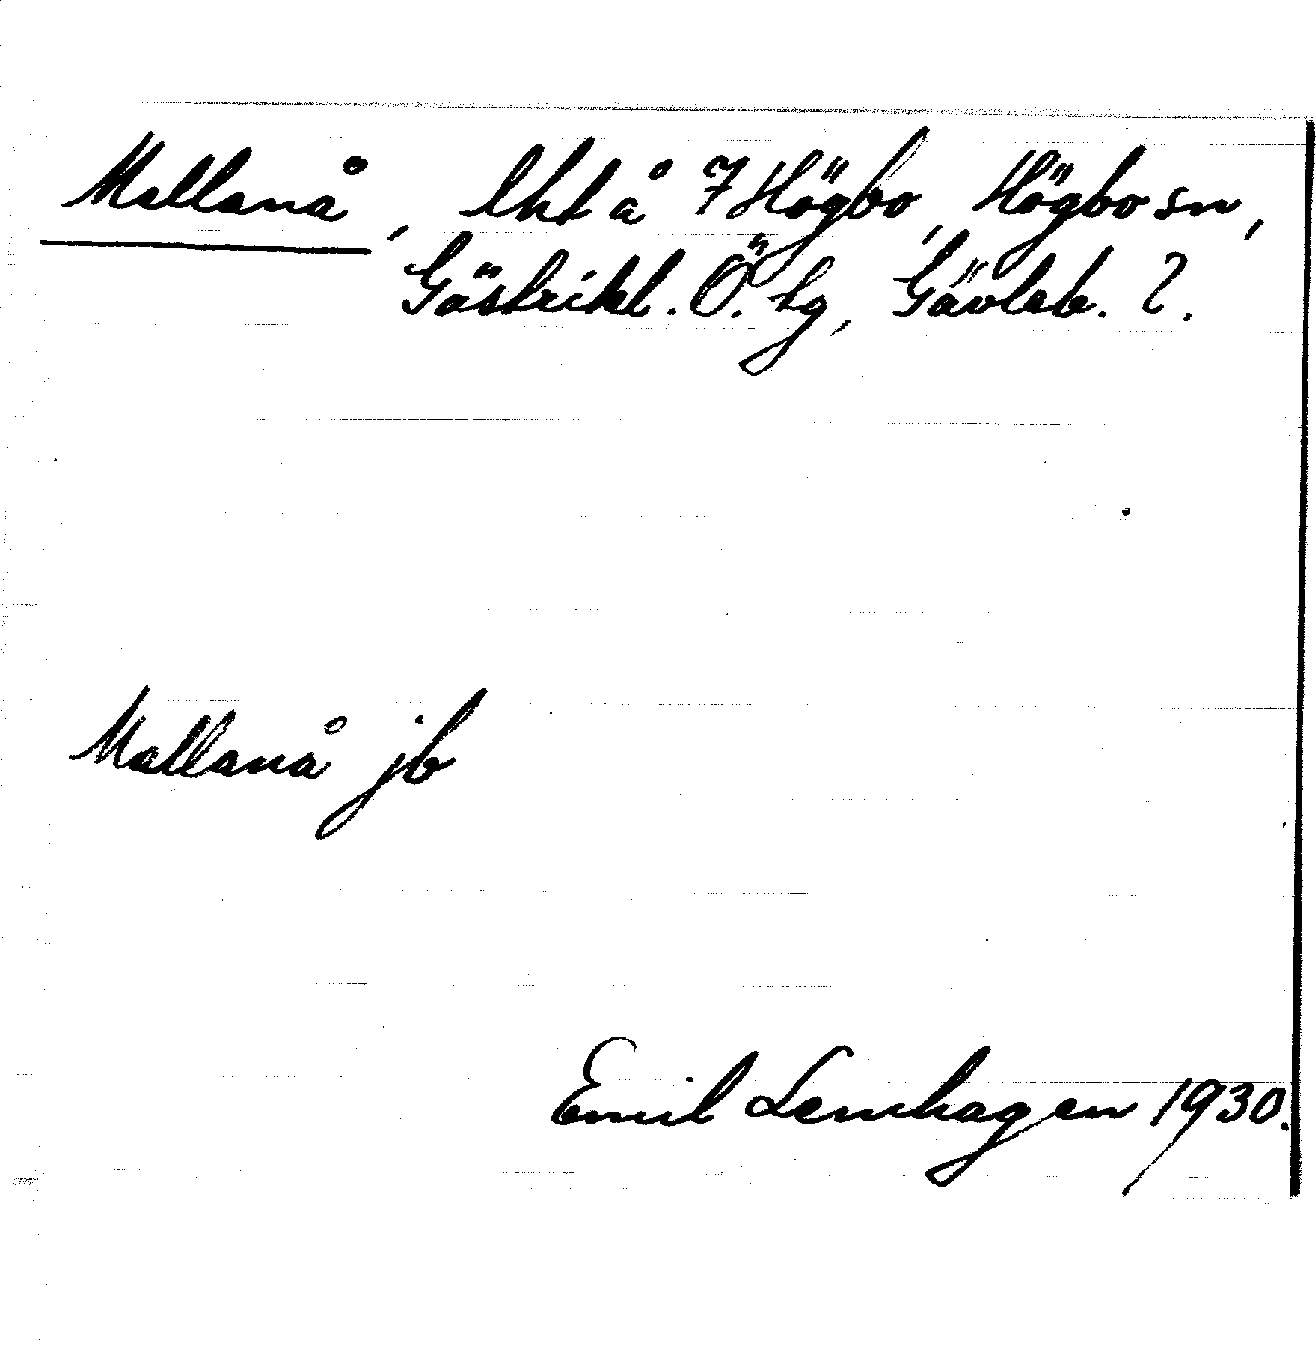 Mallanå, lht å 7 Högbo, Högbo sn,
Gästrikl. Ö. tg, Gävleb. l.
Mallanå jb
Emil Lenhagen 1930.